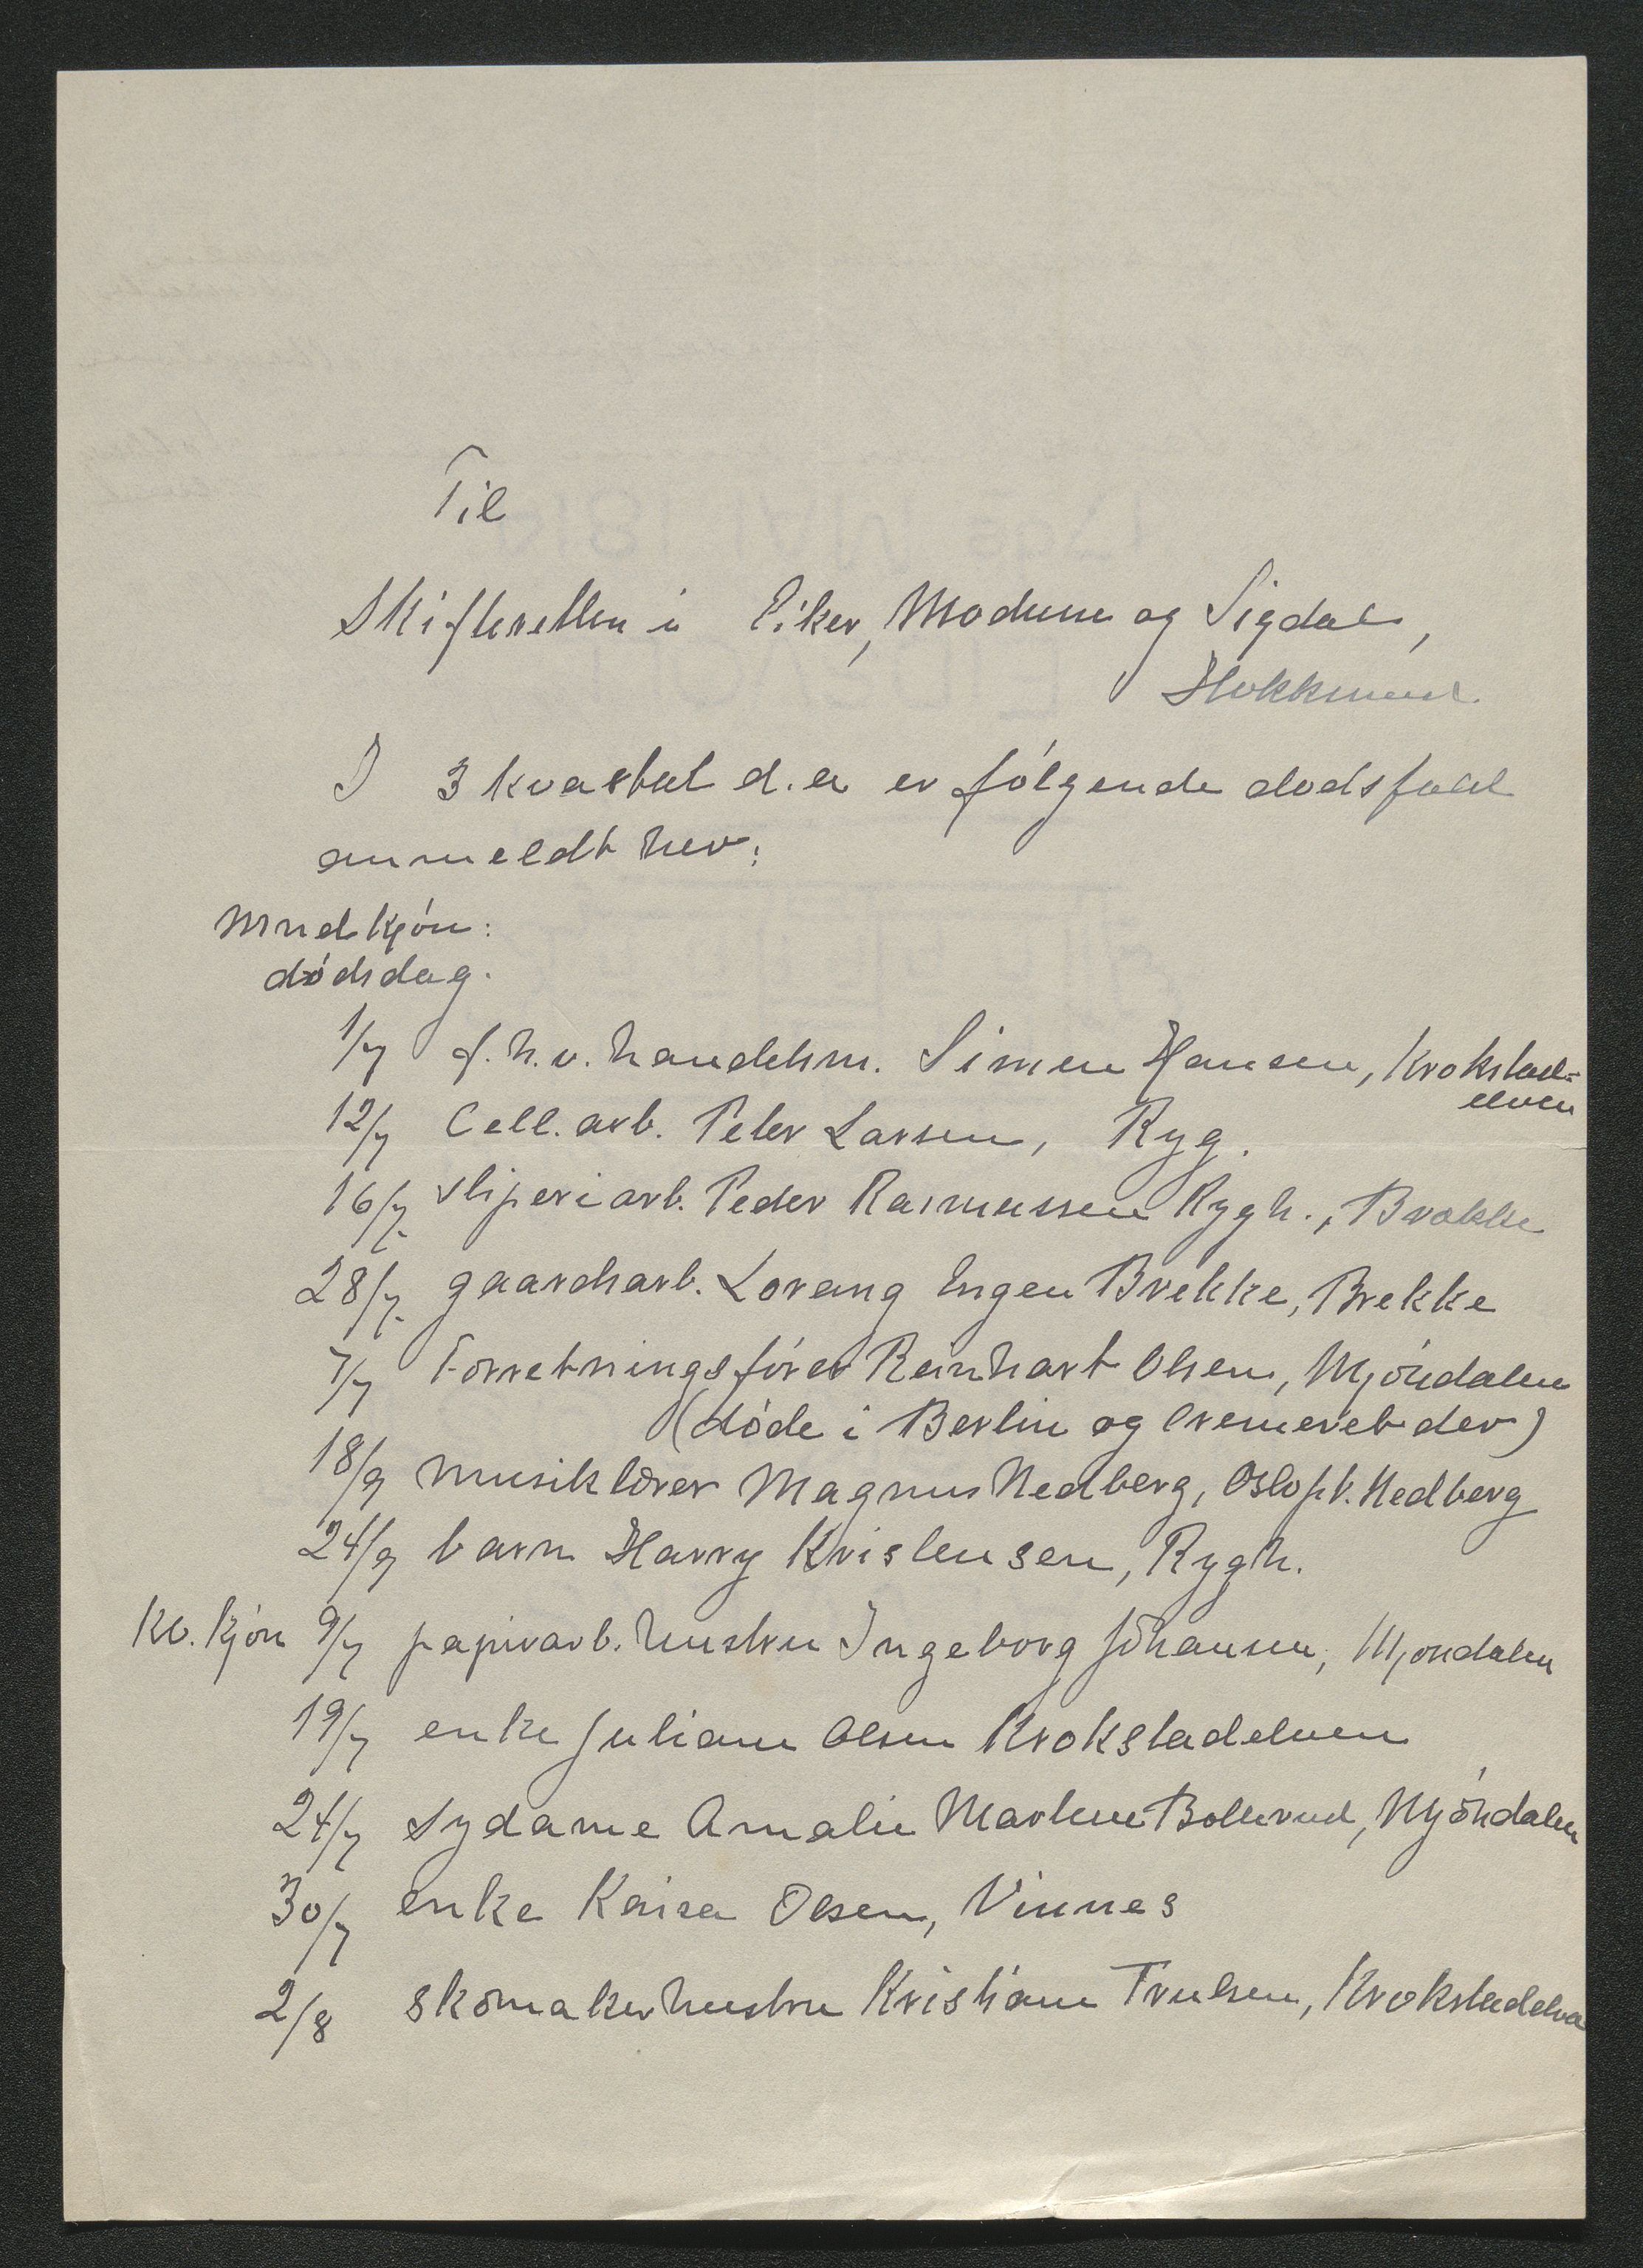 Til
Skifteretten i Eiker, Modum og Sigdal,
Hokksund
I 3 kvartal d.a er følgende dødsfald
anmeldt her:
Mnd kjøn:
dødsdag.
1/7 f.h.v. handelsm. Simen Hansen, Krokstad=
elven
12/7 Cell. arb. Peter Larsen, Ryg.
16/7 sliperiarb. Peder Rasmussen Rygh., Brekke
28/7 gaardsarb. Lorang Engen Brekke, Brekke
7/7 Forretningsfører Reinhart Olsen, Mjøndalen
(døde i Berlin og kremeret der)
18/9 Musiklærer Magnus Hedberg, Oslo p.t. Hedberg
24/9 barn Harry Kristensen, Rygh.
Kv. kjøn 9/7 papirarb. hustru Ingeborg Johansen, Mjøndalen
19/7 enke Juliane Olsen Krokstadelven
24/7 Sydame Amalie Martine Bollerud, Mjøndalen
30/7 enke Kaisa Olsen, Vinnes
2/8 skomakerhustru Kristiane Trulsen, Krokstadelva